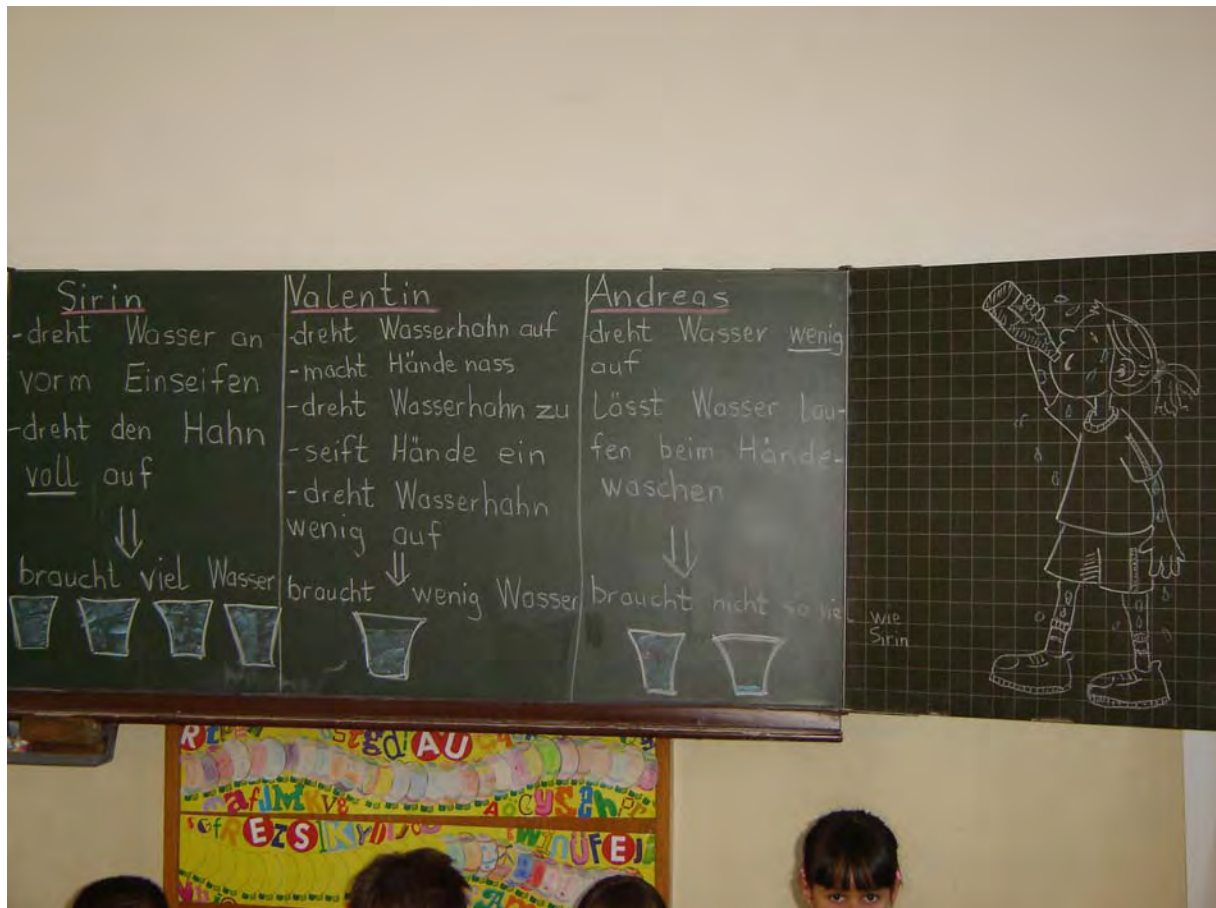 Sirin
-dreht Wasser an
vorm Einseifen
-dreht den Hahn
voll auf
braucht viel Wasser
Valentin
-dreht Wasserhahn auf
-macht Hände nass
-dreht Wasserhahn zu
-seift Hände ein
-dreht Wasserhahn
wenig auf
braucht wenig Wasser
Andreas
-dreht Wasser wenig
auf
Lässt Wasser lau-
fen beim Hände-
waschen
braucht nicht so viel
wie
Sirin
AU
afJMKVg
AoCYSEh
REZS